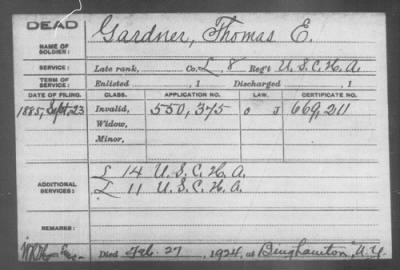 DEAD
NAME OF SOLDIER: Gardner, Thomas E.
SERVICE: Late rank, Co. L, 8 Reg't U.S.C.H.A.
TERM OF SERVICE: Enlisted , 1 Discharged , 1
DATE OF FILING. CLASS. APPLICATION NO. LAW. CERTIFICATE NO.
1885, Sept. 23 Invalid, 550,375 O J 669,211
Widow,
Minor,
ADDITIONAL SERVICES: L 14 U.S.C.H.A.
L 11 U.S.C.H.A.
REMARKS:
Died Feb. 27, 1924, at Binghamton, N.Y.